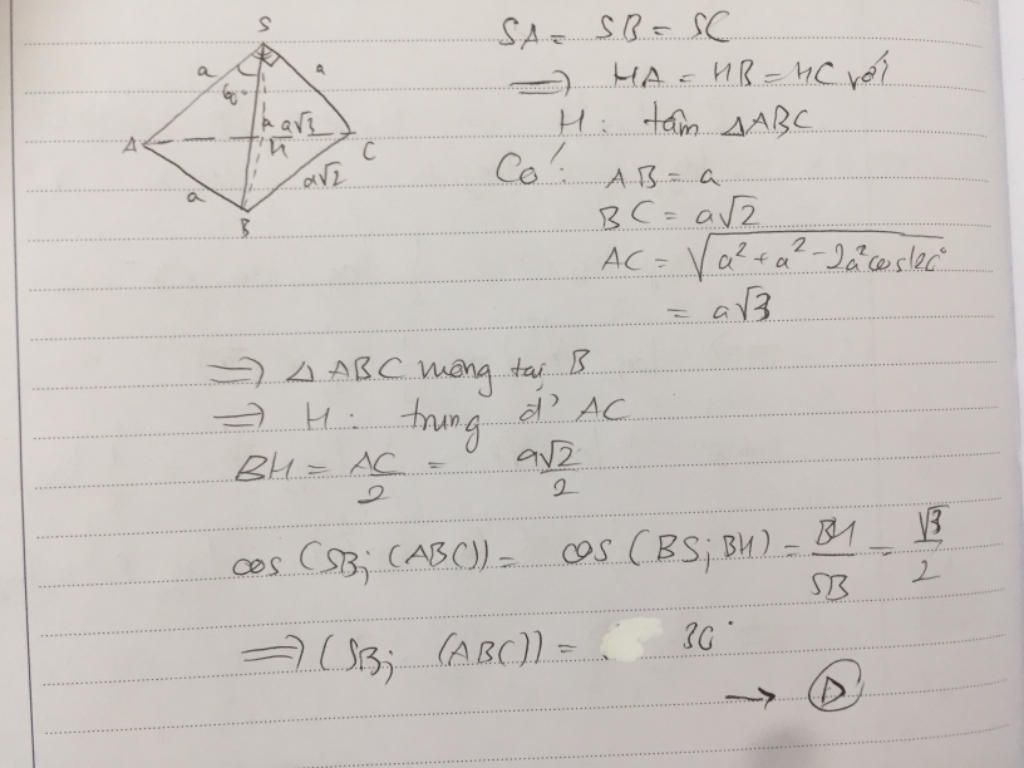 S
a a
60°
a√3
A H C
a a√2
B
SA = SB = SC
⟹ HA = HB = HC với
H : tâm ΔABC
Có : AB = a
BC = a√2
AC = √(a² + a² - 2a²cos120°)
= a√3
⟹ Δ ABC vuông tại B
⟹ H : trung đ' AC
BH = AC/2 = a√2/2
cos (SB; (ABC)) = cos (BS; BH) = BH/SB = √3/2
⟹ (SB; (ABC)) = 30°
→ D